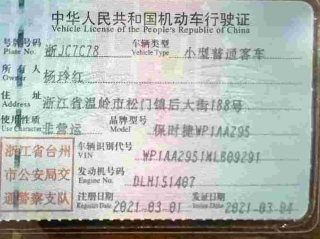 中华人民共和国机动车行驶证
Vehicle License of the People's Republic of China
号牌号码 浙JC7C78 车辆类型 小型普通客车
Plate No. Vehicle Type
所有人 杨玲红
Owner
住址 浙江省温岭市松门镇后大街188号
Address
使用性质 非营运 品牌型号 保时捷WP1AA295
Use Character Model
浙江省台州 车辆识别代号
VIN
市公安局交 发动机号码 DLH151407
Engine No.
通警察支队 注册日期 2021-03-01 发证日期 2021-03-04
Register Date Issue Date